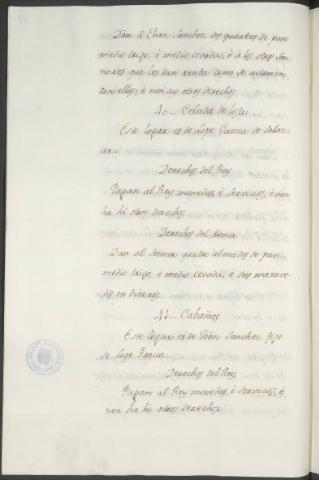 Dan á Joan Sanchez dos quartos de pan
medio trigo, é medio cevada, é á los otros Sen-
nores que les dan renta como se avienen
con ellos, é non ay otros derechos
40 – Celada de
Este logar es de Lope Garcia de Salaz-
ar.
Derechos del Rey
Pagan al Rey monedas, é Servicios, é non
ha hi otros derechos
Derechos del Sennor
Dan al Sennor quatro almudes de pan,
medio trigo, é medio cevada, é seis marave-
dis en dineros
41 – Cabañas
Este logar es de Joan Sanchez fijo
de Lope Garcia
Derechos del Rey
Pagan al Rey monedas, é servicios, é
non ha hi otros derechos